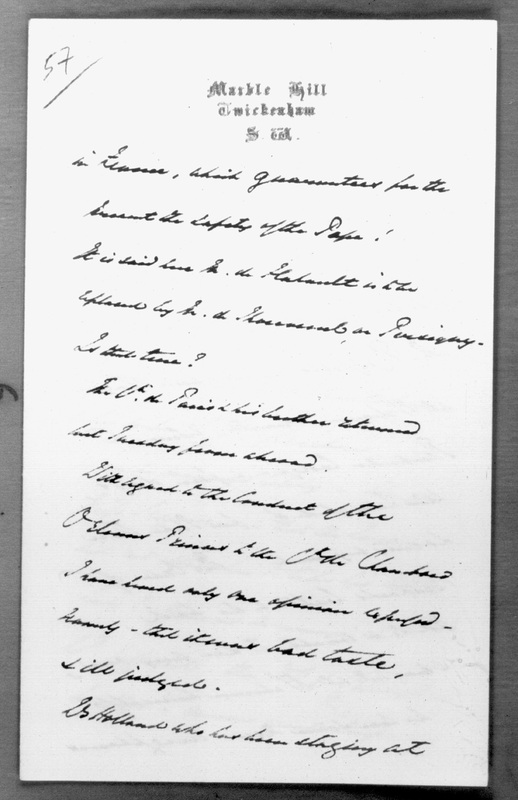 57
Marble Hill
Twickenham
S.W.
in France, which guarantees for the
present the safety of the Pope!
It is said here M. de Flahault is to be
replaced by M. de Thouvenel, or Persigny -
Is that true?
The Ct. de Paris & his brother returned
last Tuesday from abroad.
With regard to the Conduct of the
Orleans Princes to the Ct. de Chambord
I have heard only one opinion expressed -
namely - that it was bad taste,
& ill judged.
Ly Holland who has been staying at